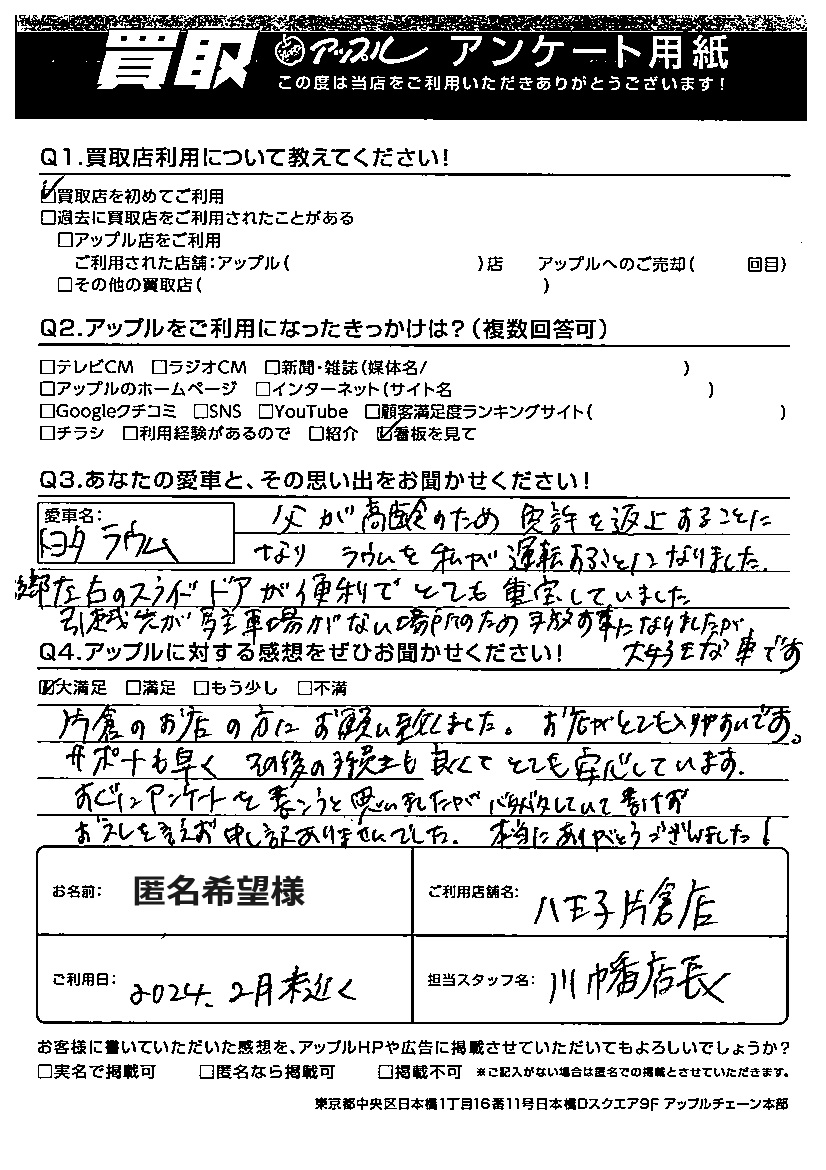 買取 アップル アンケート用紙
この度は当店をご利用いただきありがとうございます!
Q1.買取店利用について教えてください!
☑買取店を初めてご利用
□過去に買取店をご利用されたことがある
□アップル店をご利用
ご利用された店舗:アップル( )店 アップルへのご売却( 回目)
□その他の買取店( )
Q2.アップルをご利用になったきっかけは?(複数回答可)
□テレビCM □ラジオCM □新聞・雑誌(媒体名/ )
□アップルのホームページ □インターネット(サイト名 )
□Googleクチコミ □SNS □YouTube □顧客満足度ランキングサイト( )
□チラシ □利用経験があるので □紹介 ☑看板を見て
Q3.あなたの愛車と、その思い出をお聞かせください!
愛車名:
トヨタ ラウム
父が高齢のため 免許を返上することに
なり ラウムを私が運転することになりました。
左右のスライドドアが便利でとても重宝していました
引越先が駐車場がない場所のため手放す事になりましたが、
大好きな車です
Q4.アップルに対する感想をぜひお聞かせください!
☑大満足 □満足 □もう少し □不満
片倉のお店の方にお願い致しました。お店がとても入りやすいです。
サポートも早く その後の手続きも良くてとても安心しています。
すぐにアンケートを書こうと思いましたがバタバタしていて書けず
お礼を言えず申し訳ありませんでした。本当にありがとうございました!
お名前: 匿名希望様
ご利用店舗名: 八王子片倉店
ご利用日: 2024. 2月末近く
担当スタッフ名: 川幡店長
お客様に書いていただいた感想を、アップルHPや広告に掲載させていただいてもよろしいでしょうか?
□実名で掲載可 □匿名なら掲載可 □掲載不可 ※ご記入がない場合は匿名での掲載とさせていただきます。
東京都中央区日本橋1丁目16番11号日本橋Dスクエア9F アップルチェーン本部